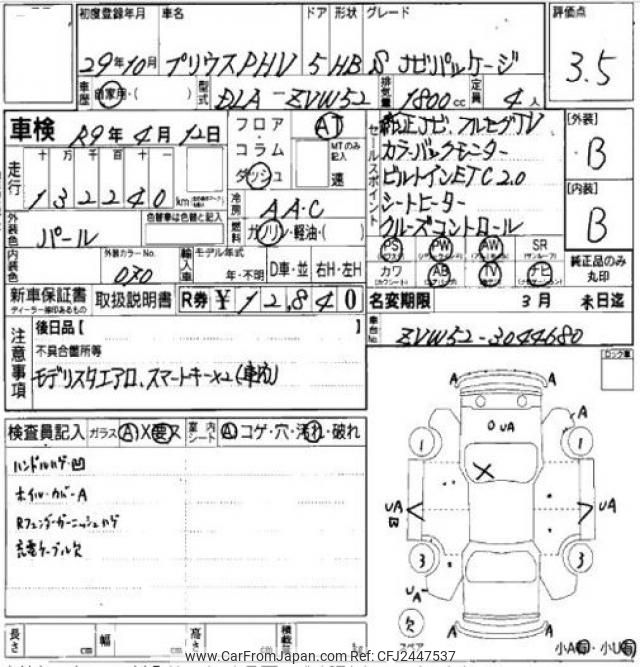 初度登録年月 車名 ドア 形状 グレード 評価点
29年10月 プリウスPHV 5 HB S ナビパッケージ 3.5
車歴 自家用・( ) 型式 DLA-ZVW52 排気量 1800cc 定員 4人
車検 R9年4月12日 フロア AT セールスポイント 純正ナビ、フルセグTV [外装]
コラム MTのみ記入 カラーバックモニター B
走行 十万千百十一 ダッシュ 速 ビルトインETC2.0
132240km 冷房 AAC シートヒーター [内装]
外装色 パール 色替車は色替と記入 燃料 ガソリン・軽油・( ) クルーズコントロール B
PS PW AW SR (サンルーフ)
内装色 外装カラーNo. 070 輸入車 モデル年式 年・不明 D車・並 右H・左H カワ AB TV ナビ 純正品のみ丸印
新車保証書 ディーラー捺印あるもの 取扱説明書 R券 ¥12,840 名変期限 3月 末日迄
注意事項 後日品【 】 車台No. ZVW52-3044680
不具合箇所等 ロック車
モデリスタエアロ、スマートキー×2(車内)
検査員記入 ガラス A X 要 又 室内シート A コゲ・穴・汚れ・破れ
ハンドルハゲ・凹
ホイルカバーA
Rフェンダーガーニッシュハゲ
充電ケーブル欠
A A
UA A
1 1
UA B UA
3 3
UA
欠 スペア A A 小A 小U
長さ cm 幅 cm 高さ cm 積載 kg
www.CarFromJapan.com Ref: CFJ2447537